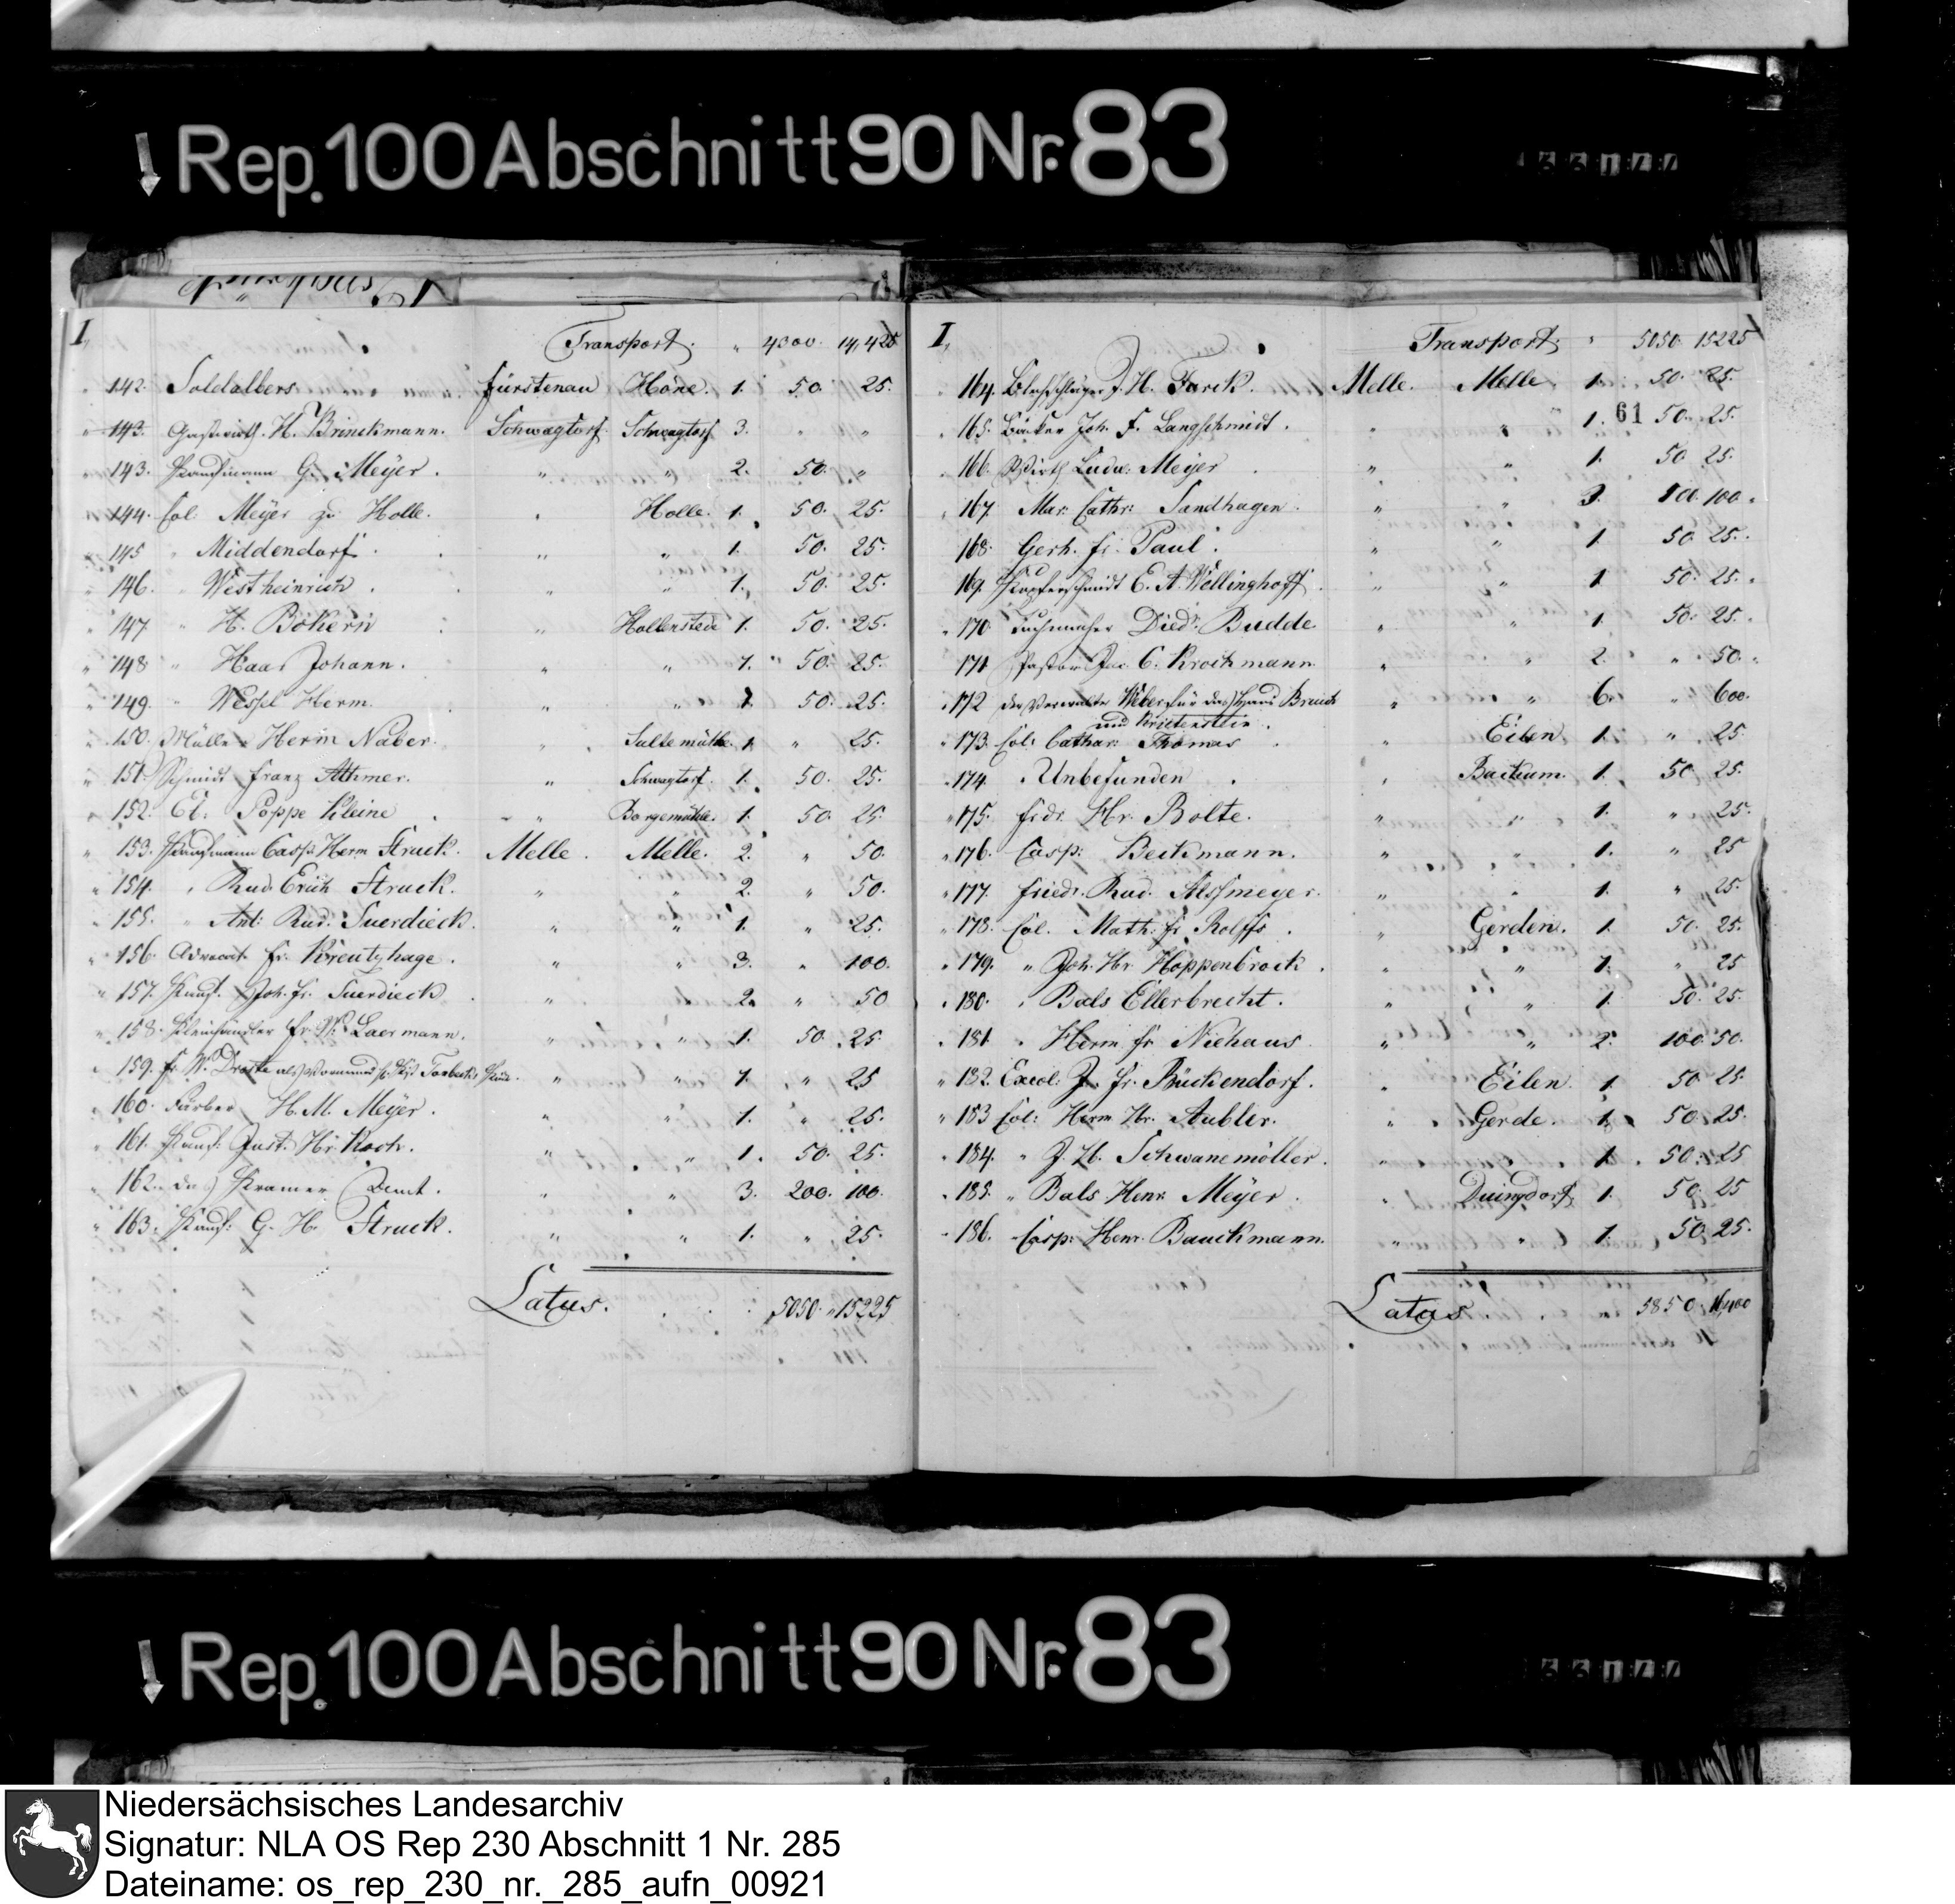 Rep. 100 Abschnitt 90 Nr. 83
I. Transport. " 4300. 14,425
142. Soldalbers Fürstenau Höne. 1. 50. 25.
143. Gastwirth. H. Brinckmann. Schwagtorf. Schwagtorf 3. " "
143. Kaufmann G. Meyer. " " 2. 50. "
144. Col. Meyer zu Holle. Holle. 1. 50. 25.
145 " Middendorf. " " 1. 50. 25.
146. " Westheinrich. " " 1. 50. 25.
147 " H. Bökern " Hollenstede 1. 50. 25.
148 " Haar Johann. " " 1. " 50. 25.
149. " Wessel Herm. " " 1. 50. 25.
150. Müller Herm Naber. " 1. " 25.
151. Schmidt Franz Athmer. " Schwagtorf. 1. 50. 25.
152. Poppe Kleine " Borgemühle. 1. 50. 25.
153. Kaufmann Casp. Herm Struck. Melle. Melle. 2. " 50.
154. " Rud. Erich Struck. " " 2. " 50.
155. " Ant: Rud: Suerdieck. " " 1. " 25.
156. Advocat Fr. Kreutzhage. " " 3. " 100.
157. Kauf. Joh. Fr. Suerdieck " " 2. " 50
158. Kleinhändler Fr. W. Laermann. " " 1. 50. 25.
159. Fr. W. Droste als Vormund " " 1. " 25
160. Färber H. M. Meyer. " " 1. " 25.
161. Kauf: Just. Hr. Koch. " " 1. 50. 25.
162. das Kramer Amt. " " 3. 200. 100.
163. Kauf: G. H. Struck. " " 1. " 25.
Latus. 5050. " 15225
I. Transport. " 5050. 15225
164. Blechschläger J. H. Farck. Melle. Melle 1. 50. 25.
165. Bäcker Joh. F. Langschmidt. " " 1. 61 50. 25.
166. Wirth Ludw. Meyer " " 1. 50 25.
167. Mar: Cathr: Sandhagen. " " 3. 100.
168. Gerh. Fr. Paul. " " 1. 50. 25.
169. Kupferschmidt E. A. Wellinghoff. " " 1. 50. 25.
170. Tuchmacher Died: Budde " " 1. 50. 25.
171 Pastor C. Krochmann. " " 2. " 50.
172 der Verwalter Weber für das Haus Bruch " " 6. " 600.
und Krietenstein.
173. Col: Cathar: Thomas. " Eiken 1. " 25.
174. Unbefunden " Backum. 1. 50 25.
175. Frdr. Hr. Bolte. " " 1. " 25.
176. Casp: Beckmann. " " 1. " 25
177. Friedr. Rud. " " 1. " 25.
178. Col. Math. Fr. Rolffs. " Gerden. 1. 50. 25.
179. " Joh. Hr. Hoppenbrock. " " 1. " 25
180. " Bals Ellerbrecht. " " 1. 50. 25.
181. " Herm Fr. Niehaus " " 2. 100. 50.
182. Excol: J. Fr. Brückendorf. " Eiken. 1. 50 25.
183 Col: Herm Hr. Aubler. " Gerde. 1. 50. 25.
184. " J. H. Schwanemöller. " " 1. 50. 25
185. " Bals Henr. Meyer. " 1. 50. 25
186. Casp: Henr. Bauckmann. " " 1. 50. 25.
Latus. 5850. 16,400
Rep. 100 Abschnitt 90 Nr. 83
Niedersächsisches Landesarchiv
Signatur: NLA OS Rep 230 Abschnitt 1 Nr. 285
Dateiname: os_rep_230_nr._285_aufn_00921